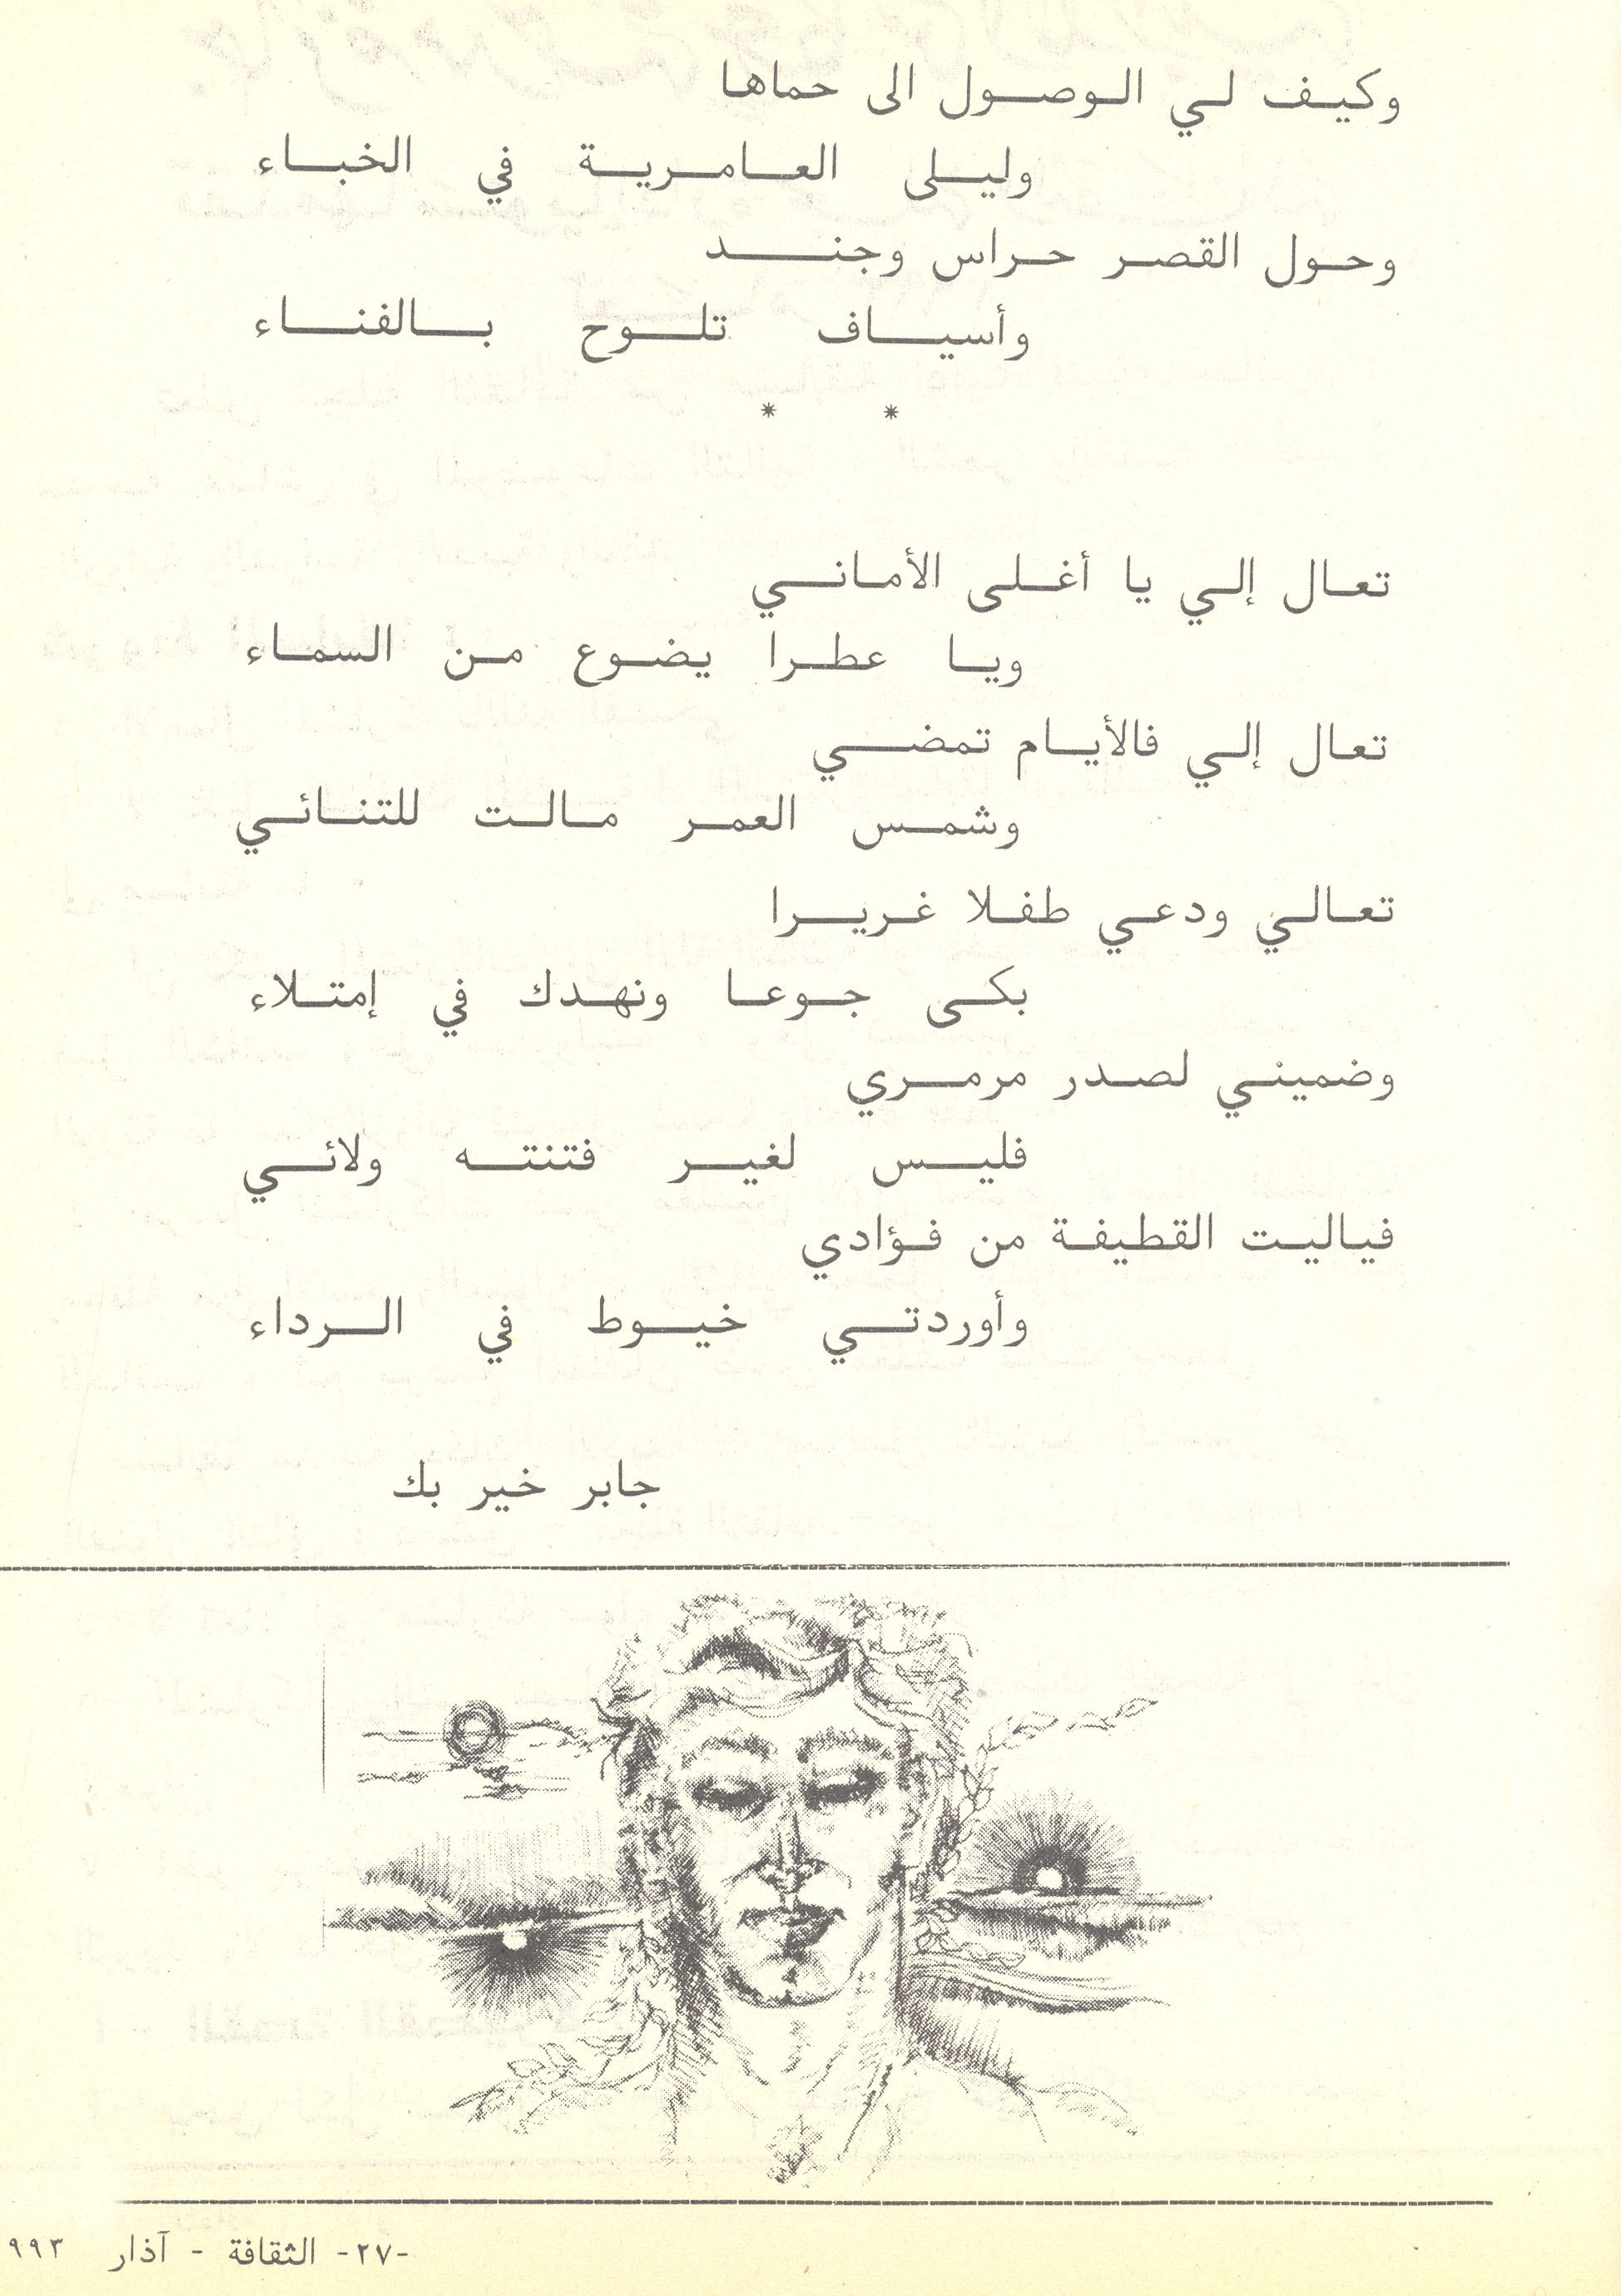 وكيف لي الوصول الى حماها
وليلى العامرية في الخباء
وحول القصر حراس وجند
وأسياف تلوح بالفناء
* *
تعال إلي يا أغلى الأماني
ويا عطرا يضوع من السماء
تعال إلي فالأيام تمضي
وشمس العمر مالت للتنائي
تعالي ودعي طفلا غريرا
بكى جوعا ونهدك في إمتلاء
وضميني لصدر مرمري
فليس لغير فتنته ولائي
فياليت القطيفة من فؤادي
وأوردتي خيوط في الرداء
جابر خير بك
-٢٧- الثقافة - آذار ٩٩٣